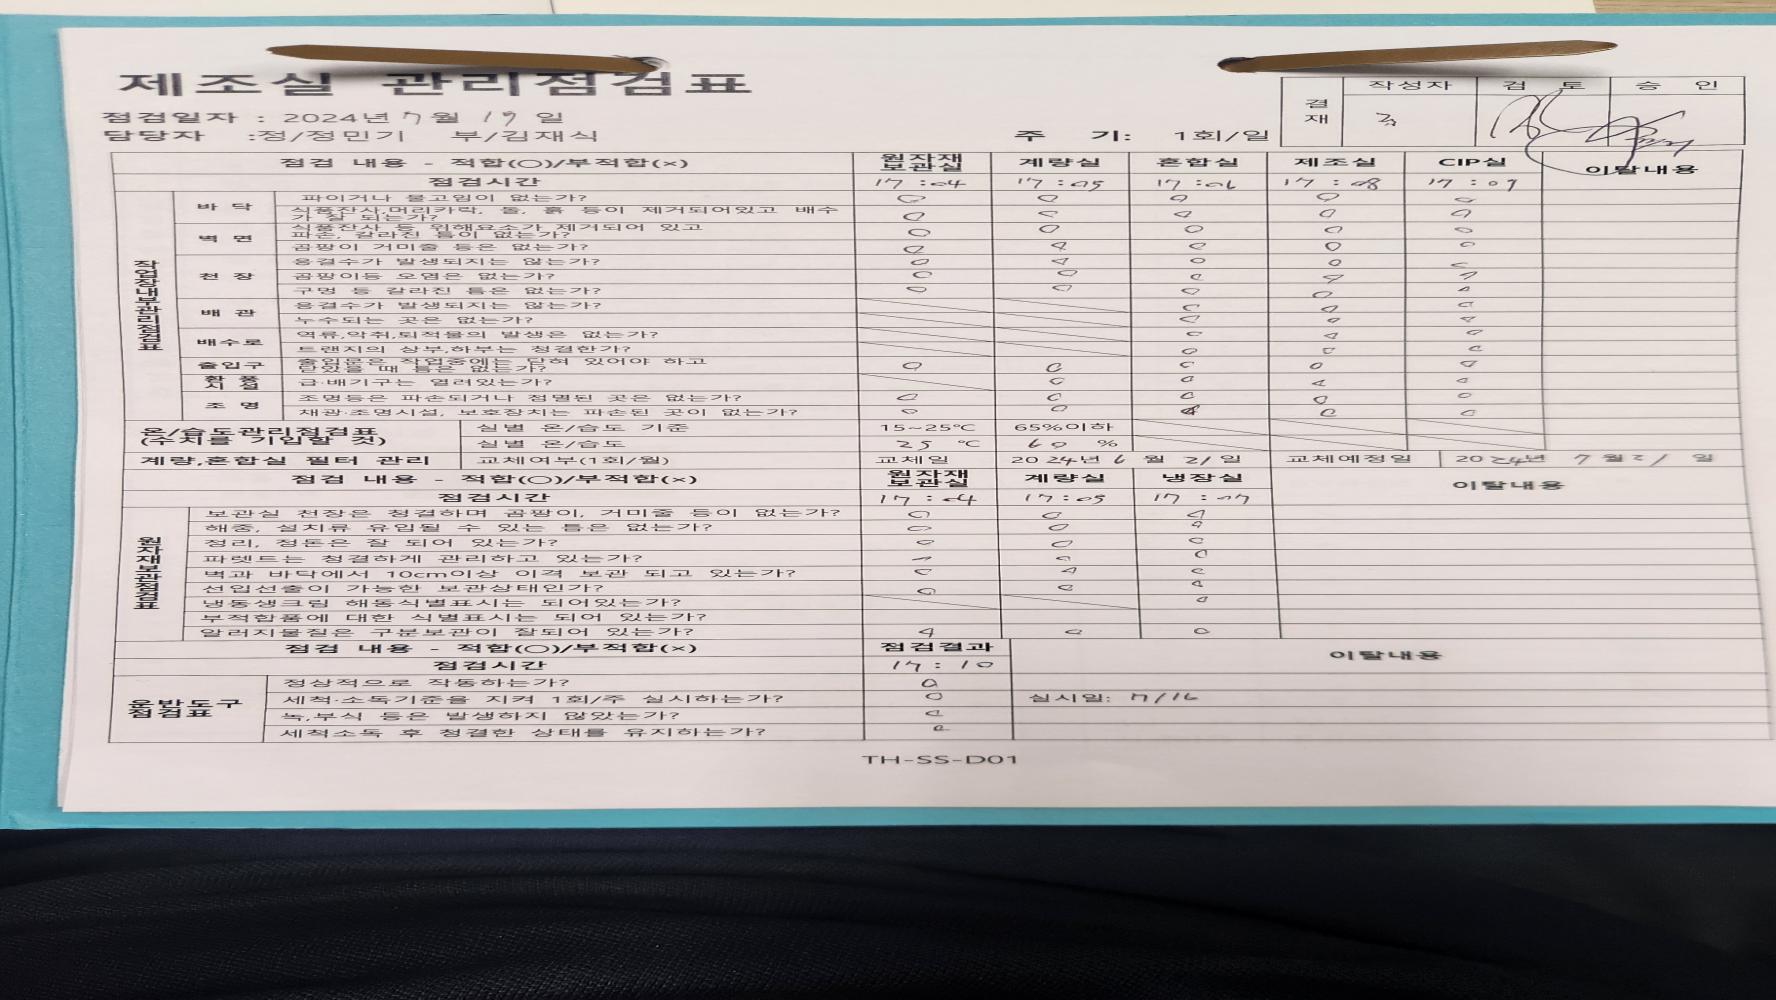 제조실 관리점검표
작성자 검 토 승 인
결재
점검일자 : 2024년 7월 19일
담당자 :정/정민기 부/김재식 주 기: 1회/일
점검 내용 - 적합(○)/부적합(×) 원자재보관실 계량실 혼합실 제조실 CIP실 이탈내용
점검시간 17:04 17:05 17:06 17:08 17:09
작업장내부관리점검표
바 닥 파이거나 물고임이 없는가? ○ ○ ○ ○ ○
식품잔사,머리카락, 돌, 흙 등이 제거되어있고 배수가 잘 되는가? ○ ○ ○ ○ ○
벽 면 식품잔사 등 위해요소가 제거되어 있고 파손, 갈라진 틈이 없는가? ○ ○ ○ ○ ○
곰팡이 거미줄 등은 없는가? ○ ○ ○ ○ ○
천 장 응결수가 발생되지는 않는가? ○ ○ ○ ○ ○
곰팡이등 오염은 없는가? ○ ○ ○ ○ ○
구멍 등 갈라진 틈은 없는가? ○ ○ ○ ○ ○
배 관 응결수가 발생되지는 않는가? ○ ○ ○
누수되는 곳은 없는가? ○ ○ ○
배수로 역류,악취,퇴적물의 발생은 없는가? ○ ○ ○
트랜지의 상부,하부는 청결한가? ○ ○ ○
출입구 출입문은 작업중에는 닫혀 있어야 하고 닫았을 때 틈은 없는가? ○ ○ ○ ○ ○
환풍시설 급·배기구는 열려있는가? ○ ○ ○ ○
조 명 조명등은 파손되거나 점멸된 곳은 없는가? ○ ○ ○ ○ ○
채광·조명시설, 보호장치는 파손된 곳이 없는가? ○ ○ ○ ○ ○
온/습도관리점검표 (수치를 기입할 것) 실별 온/습도 기준 15~25℃ 65%이하
실별 온/습도 25 ℃ 60 %
계량,혼합실 필터 관리 교체여부(1회/월) 교체일 2024년 6월 21일 교체예정일 2024년 7월 21일
점검 내용 - 적합(○)/부적합(×) 원자재보관실 계량실 냉장실 이탈내용
점검시간 17:04 17:05 17:07
원자재보관점검표
보관실 천장은 청결하며 곰팡이, 거미줄 등이 없는가? ○ ○ ○
해충, 설치류 유입될 수 있는 틈은 없는가? ○ ○ ○
정리, 정돈은 잘 되어 있는가? ○ ○ ○
파렛트는 청결하게 관리하고 있는가? ○ ○ ○
벽과 바닥에서 10cm이상 이격 보관 되고 있는가? ○ ○ ○
선입선출이 가능한 보관상태인가? ○ ○ ○
냉동생크림 해동식별표시는 되어있는가? ○
부적합품에 대한 식별표시는 되어 있는가?
알러지물질은 구분보관이 잘되어 있는가? ○ ○ ○
점검 내용 - 적합(○)/부적합(×) 점검결과 이탈내용
점검시간 17:10
운반도구점검표
정상적으로 작동하는가? ○
세척·소독기준을 지켜 1회/주 실시하는가? ○ 실시일: 7/16
녹,부식 등은 발생하지 않았는가? ○
세척소독 후 청결한 상태를 유지하는가? ○
TH-SS-D01